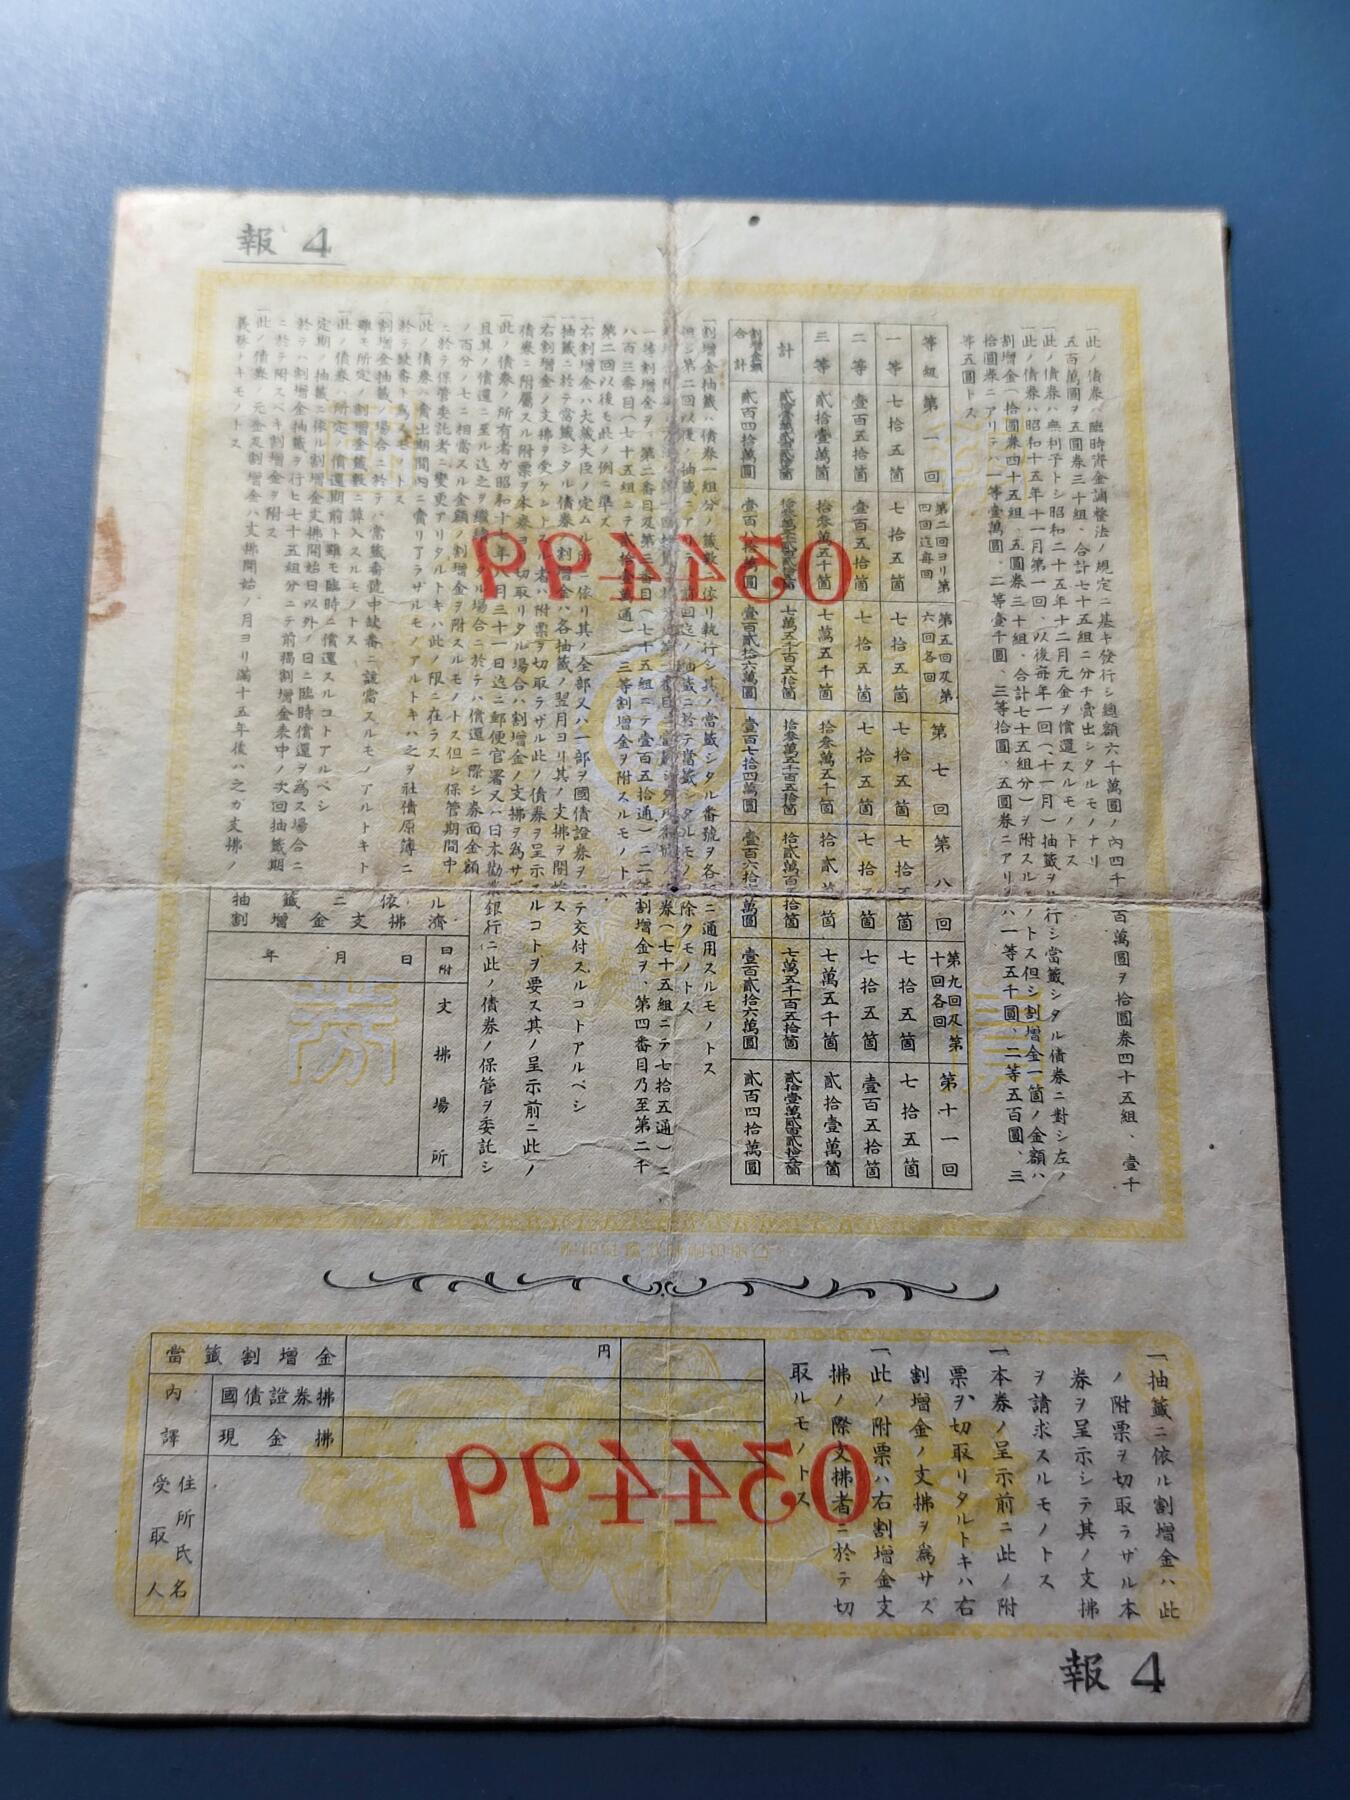 報 4
一此ノ債券ハ臨時資金調整法ノ規定ニ基キ發行シ總額六千萬圓ノ內四千
百萬圓ヲ拾圓券四十五組、壹千
五百萬圓ヲ五圓券三十組、合計七十五組ニ分チ賣出シタルモノナリ
一此ノ債券ハ無利子トシ昭和二十五年十二月元金ヲ償還スルモノトス
一此ノ債券ハ昭和十五年十一月第一回、以後每年一回(十一月)抽籤ヲ
行シ當籤シタル債券ニ對シ左ノ
割增金(拾圓券四十五組、五圓券三十組、合計七十五組分)ヲ附スル
ノトス但シ割增金一箇ノ金額ハ
拾圓券ニアリテハ一等壹萬圓、二等壹千圓、三等拾圓、五圓券ニアリ
ハ一等五千圓、二等五百圓、三
等五圓トス
等級 第一回 第二回ヨリ第四回迄每回 第五回及第六回各回 第七回 第八回 第九回及第十回各回 第十一回
一等 七拾五箇 七拾五箇 七拾五箇 七拾五箇 七拾 箇 七拾五箇 七拾五箇
二等 壹百五拾箇 壹百五拾箇 七拾五箇 七拾五箇 七拾 箇 七拾五箇 壹百五拾箇
三等 貳拾壹萬箇 拾參萬五千箇 七萬五千箇 拾參萬五千箇 拾貳萬箇 七萬五千箇 貳拾壹萬箇
計 貳拾壹萬貳百貳拾五箇 拾參萬五千貳百貳拾五箇 七萬五千百五拾箇 拾參萬五千百五拾箇 拾貳萬百 拾箇 七萬五千百五拾箇 貳拾壹萬貳百貳拾五箇
割增金額合計 貳百四拾萬圓 壹百八拾 萬圓 壹百貳拾六萬圓 壹百七拾四萬圓 壹百六拾 萬圓 壹百貳拾六萬圓 貳百四拾萬圓
一割增金抽籤ハ債券一組分ノ籤數 依リ執行シ其ノ當籤シタル番號ヲ各
ニ通用スルモノトス
但シ第二回以後ノ抽籤ニアリテ 前回迄ノ抽籤ニ於テ當籤シタルモノ
除クモノトス
券(七十五組ニテ七拾五通)ニ
一等割增金ヲ、第二番目及第三番目(七十五組ニテ壹百五拾通)ニ二等割增金ヲ、第四番目乃至第二千
八百三番目(七十五組ニテ貳拾 萬通)ニ三等割增金ヲ附スルモノト
第二回以後モ此ノ例ニ準ズ
一右割增金ハ大藏大臣ノ定ムル所ニ依リ其ノ全部又ハ一部ヲ國債證券ヲ
テ交付スルコトアルベシ
一抽籤ニ於テ當籤シタル債券ノ割增金ハ各抽籤ノ翌月ヨリ其ノ支拂ヲ開始ス
一右割增金ノ支拂ヲ受ケントスル者ハ附票ヲ切取ラザル此ノ債券ヲ呈示スルコトヲ要ス其ノ呈示前ニ此ノ
債券ニ附屬スル附票ヲ本券ヨリ切取リタル場合ハ割增金ノ支拂ヲ爲サズ
一此ノ債券ノ所有者ガ昭和十 年八月三十一日迄ニ郵便官署又ハ日本勸
銀行ニ此ノ債券ノ保管ヲ委託シ
且其ノ償還ニ至ル迄之ヲ繼續シタル場合ニ於テハ償還ニ際シ券面金額
ノ百分ノ七ニ相當スル金額ノ割增金ヲ附スルモノトス但シ保管期間中
ニ於テ保管委託者ニ變更アリタルトキハ此ノ限ニ在ラズ
一此ノ債券ハ賣出期間內ニ賣リ了ラザルモノアルトキハ之ヲ社債原簿ニ
於テ缺番ト爲スモノトス
一割增金抽籤ノ場合ニ於テハ當籤番號中缺番ニ該當スルモノアルトキト
雖モ所定ノ割增金籤數ニ算入スルモノトス
一此ノ債券ハ所定ノ償還期前ト雖モ臨時ニ償還スルコトアルベシ
定期ノ抽籤ニ依ル割增金支拂開始日以外ノ日ニ臨時償還ヲ爲ス場合ニ
於テハ割增金抽籤ヲ行ヒ七十五組分ニテ前揭割增金表中ノ次回抽籤期
ニ於テ附スベキ割增金ヲ附ス
一此ノ債券ノ元金及割增金ハ支拂開始ノ月ヨリ滿十五年後ハ之ガ支拂ノ
義務ナキモノトス
抽籤ニ依ル
割增金支拂濟
年 月 日 日附
支拂場所
034499
一抽籤ニ依ル割增金ハ此
ノ附票ヲ切取ラザル本
券ヲ呈示シテ其ノ支拂
ヲ請求スルモノトス
一本券ノ呈示前ニ此ノ附
票ヲ切取リタルトキハ右
割增金ノ支拂ヲ爲サズ
一此ノ附票ハ右割增金支
拂ノ際支拂者ニ於テ切
取ルモノトス
當籤割增金 円
內譯 國債證券拂
現金拂
受取人 住所氏名
034499
報 4